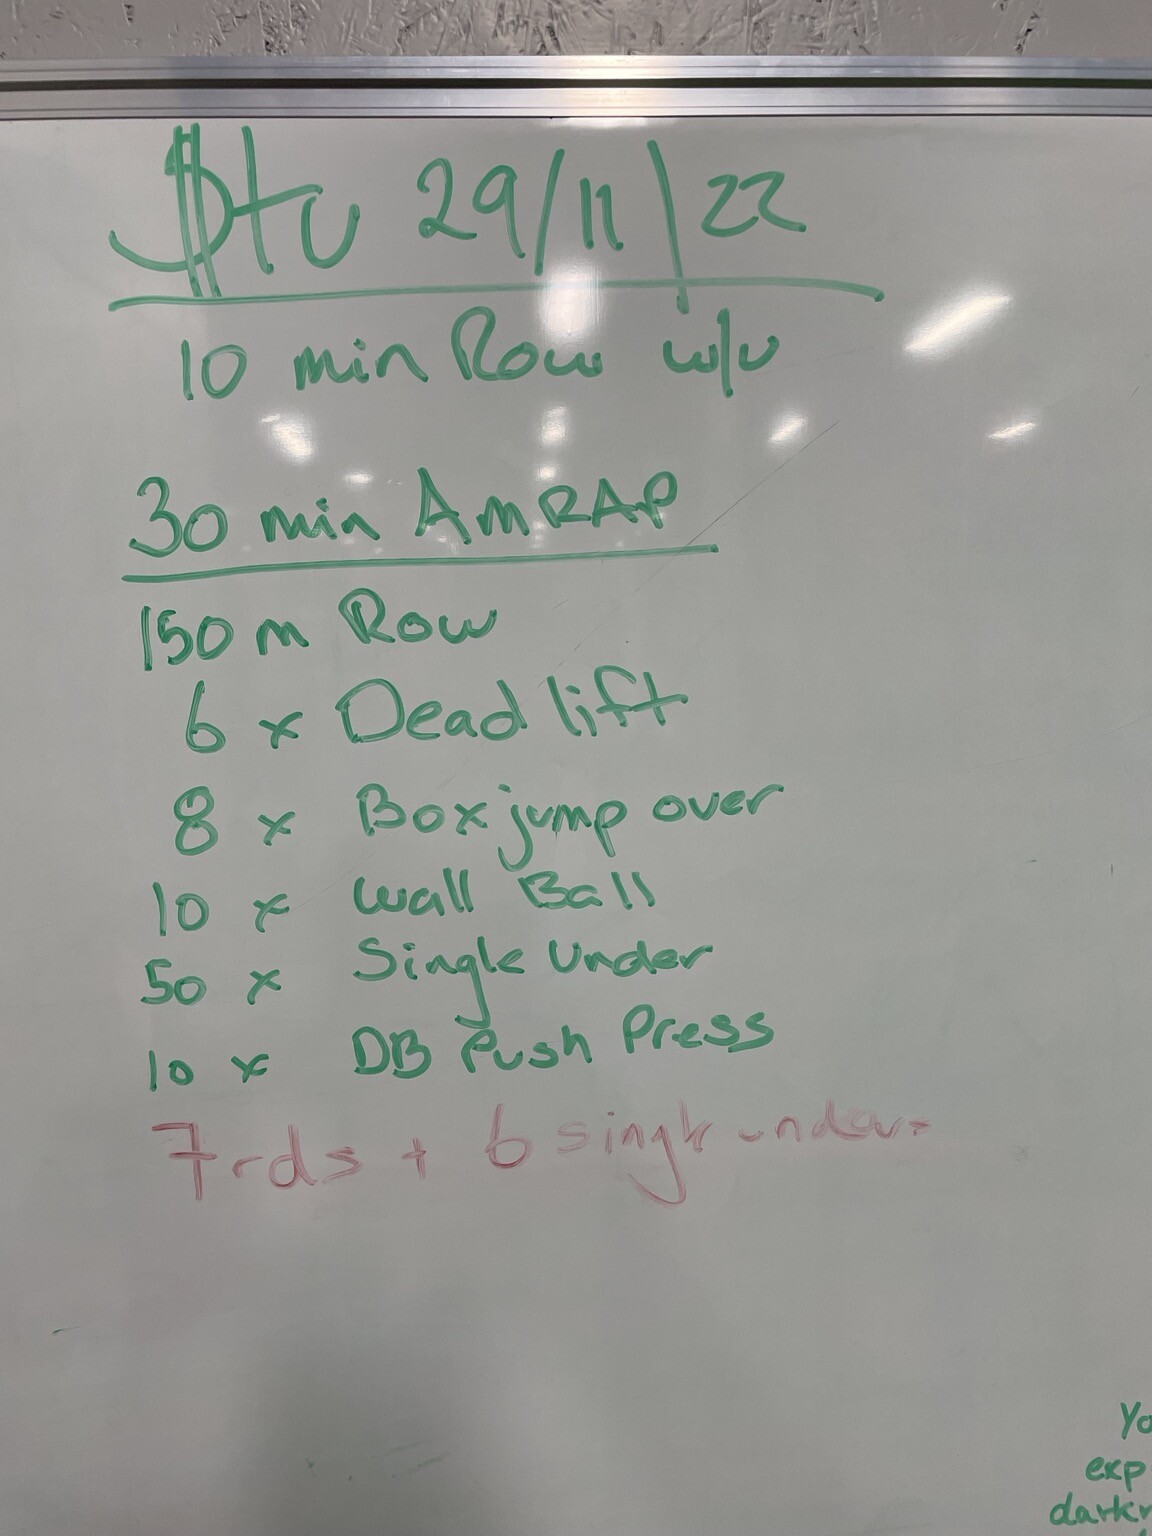 $tu 29/11/22
10 min Row w/u
30 min AMRAP
150 m Row
6 x Dead lift
8 x Box jump over
10 x Wall Ball
50 x Single Under
10 x DB Push Press
7 rds + 6 single unders
Yo
exp
darkn